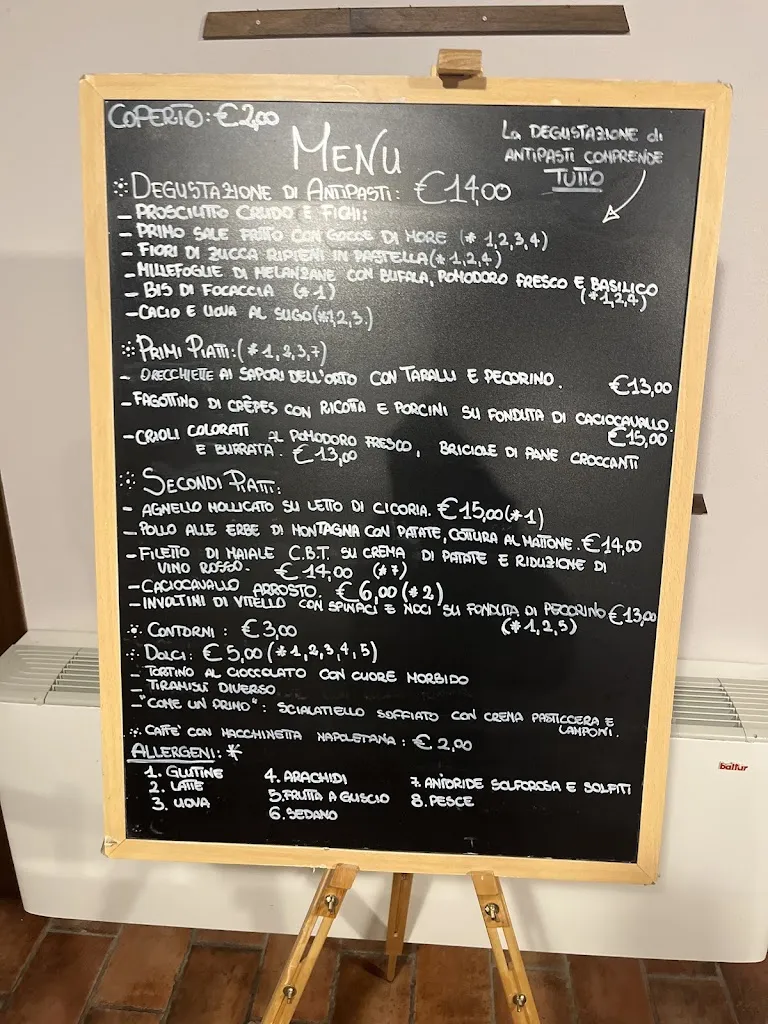 COPERTO: €2,00
MENU
La DEGUSTAZIONE di
ANTIPASTI COMPRENDE
TUTTO
DEGUSTAZIONE DI ANTIPASTI: €14,00
- PROSCIUTTO CRUDO E FICHI;
- PRIMO SALE FRITTO CON GOCCE DI MORE (* 1,2,3,4)
- FIORI DI ZUCCA RIPIENI IN PASTELLA (* 1,2,4)
- MILLEFOGLIE DI MELANZANE CON BUFALA, POMODORO FRESCO E BASILICO
(*1,2,4)
- BIS DI FOCACCIA (* 1)
- CACIO E UOVA AL SUGO (*1,2,3.)
PRIMI PIATTI: (* 1,2,3,7)
- ORECCHIETTE AI SAPORI DELL'ORTO CON TARALLI E PECORINO. €13,00
- FAGOTTINO DI CRÊPES CON RICOTTA E PORCINI SU FONDUTA DI CACIOCAVALLO.
€15,00
- CRIOLI COLORATI AL POMODORO FRESCO, BRICIOLE DI PANE CROCCANTI
E BURRATA. €13,00
SECONDI PIATTI:
- AGNELLO MOLLICATO SU LETTO DI CICORIA. €15,00 (* 1)
- POLLO ALLE ERBE DI MONTAGNA CON PATATE, COTTURA AL MATTONE. €14,00
- FILETTO DI MAIALE C.B.T. SU CREMA DI PATATE E RIDUZIONE DI
VINO ROSSO. €14,00 (* 7)
- CACIOCAVALLO ARROSTO. €6,00 (* 2)
- INVOLTINI DI VITELLO CON SPINACI E NOCI SU FONDUTA DI PECORINO €13,00
(* 1,2,5)
CONTORNI: €3,00
DOLCI: €5,00 (* 1,2,3,4,5)
- TORTINO AL CIOCCOLATO CON CUORE MORBIDO
- TIRAMISÙ DIVERSO
- "COME UN PRIMO": SCIALATIELLO SOFFIATO CON CREMA PASTICCERA E
LAMPONI.
CAFFE' CON MACCHINETTA NAPOLETANA: €2,00
ALLERGENI: *
1. GLUTINE
2. LATTE
3. UOVA
4. ARACHIDI
5. FRUTTA A GUSCIO
6. SEDANO
7. ANIDRIDE SOLFOROSA E SOLFITI
8. PESCE
baltur